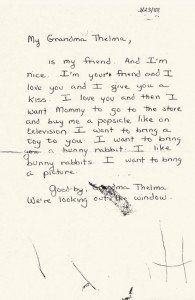 My Grandma Thelma,
is my friend. And I'm
nice. I'm your friend and I
love you and I give you a
kiss. I love you and then I
want Mommy to go to the store
and buy me a popsicle like on
television. I want to bring a
toy to you. I want to bring
you a bunny rabbit. I like
bunny rabbits. I want to bring
a picture.
Good-by, Thelma
We're looking out the window.